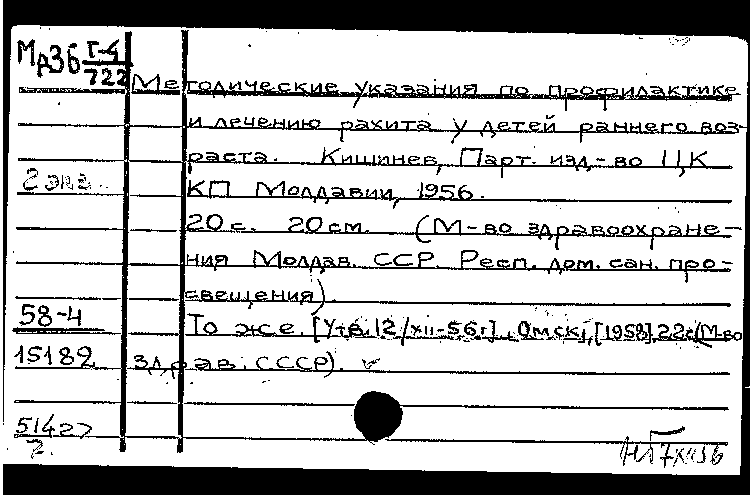 Мд36 Г-4
722
Методические указания по профилактике
и лечению рахита у детей раннего воз-
раста. Кишинев, Парт. изд-во ЦК
2 экз.
КП Молдавии, 1956.
20 с. 20 см. (М-во здравоохране-
ния Молдав. ССР. Респ. дом. сан. про-
свещения).
58-4
То же. [Утв. 12/XII-56 г]. Омск, [1958]. 22 с. (М-во
15182 здрав. СССР).
51427
2.